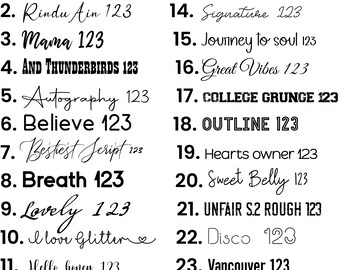 2. Rindu Ain 123
3. Mama 123
4. And Thunderbirds 123
5. Autography 123
6. Believe 123
7. Bestiest Script 123
8. Breath 123
9. Lovely 123
10. I love Glitter
11. Hello honey 123
14. Signature 123
15. Journey to soul 123
16. Great Vibes 123
17. COLLEGE GRUNGE 123
18. OUTLINE 123
19. Hearts owner 123
20. Sweet Belly 123
21. UNFAIR S.2 ROUGH 123
22. Disco 123
23. Vancouver 123